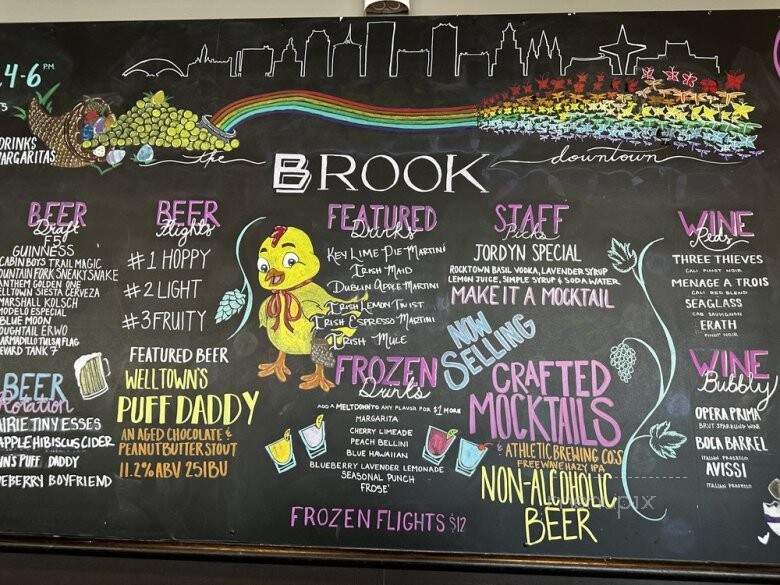 4-6 PM
DRINKS
MARGARITAS
the
BROOK
downtown
BEER
Draft
GUINNESS
CABIN BOYS TRAIL MAGIC
MOUNTAIN FORK SNEAKY SNAKE
ANTHEM GOLDEN ONE
WELLTOWN SIESTA CERVEZA
MARSHALL KOLSCH
MODELO ESPECIAL
BLUE MOON
ARMADILLO TULSA FLAG
TANK 7
BEER
Rotation
PRAIRIE TINY ESSES
APPLE HIBISCUS CIDER
PUFF DADDY
BOYFRIEND
BEER
Flights
#1 HOPPY
#2 LIGHT
#3 FRUITY
FEATURED BEER
WELLTOWN'S
PUFF DADDY
AN AGED CHOCOLATE &
PEANUT BUTTER STOUT
11.2% ABV 25 IBU
FEATURED
Drinks
KEY LIME PIE MARTINI
IRISH MAID
DUBLIN APPLE MARTINI
IRISH LEMON TWIST
IRISH ESPRESSO MARTINI
IRISH MULE
FROZEN
Swirls
ADD A MELTDOWN TO ANY FLAVOR FOR $1 MORE
MARGARITA
CHERRY LIMEADE
PEACH BELLINI
BLUE HAWAIIAN
BLUEBERRY LAVENDER LEMONADE
SEASONAL PUNCH
FROSE'
FROZEN FLIGHTS $12
STAFF
Picks
JORDYN SPECIAL
ROCKTOWN BASIL VODKA, LAVENDER SYRUP
LEMON JUICE, SIMPLE SYRUP & SODA WATER
MAKE IT A MOCKTAIL
NOW
SELLING
CRAFTED
MOCKTAILS
& ATHLETIC BREWING CO'S
FREE WAVE HAZY IPA
NON-ALCOHOLIC
BEER
WINE
Reds
THREE THIEVES
CALI PINOT NOIR
MENAGE A TROIS
CALI RED BLEND
SEAGLASS
CAB SAUVIGNON
ERATH
PINOT NOIR
WINE
Bubbly
OPERA PRIMA
BRUT SPARKLING WINE
BOCA BARREL
ITALIAN PROSECCO
AVISSI
ITALIAN PROSECCO